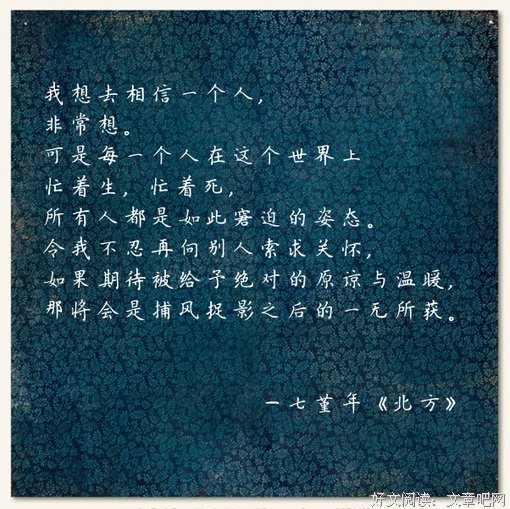 我想去相信一个人，
非常想。
可是每一个人在这个世界上
忙着生，忙着死，
所有人都是如此窘迫的姿态。
令我不忍再向别人索求关怀，
如果期待被给予绝对的原谅与温暖，
那将会是捕风捉影之后的一无所获。
一七堇年《北方》
好文阅读：文章吧网